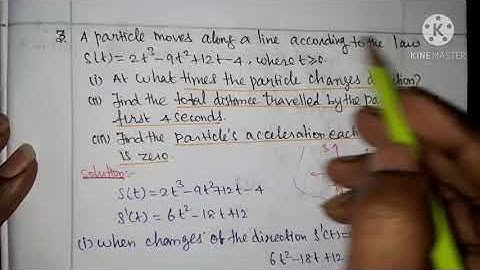 3. A particle moves along a line according to the law
S(t)=2t³-9t²+12t-4, where t≥0.
(i) At what times the particle changes direction?
(ii) Find the total distance travelled by the
first 4 seconds.
(iii) Find the particle's acceleration each
is zero.
Solution:-
S(t)=2t³-9t²+12t-4
S'(t)=6t²-18t+12
(i) when changes of the direction S'(t)=
6t²-18t+12
KINEMASTER